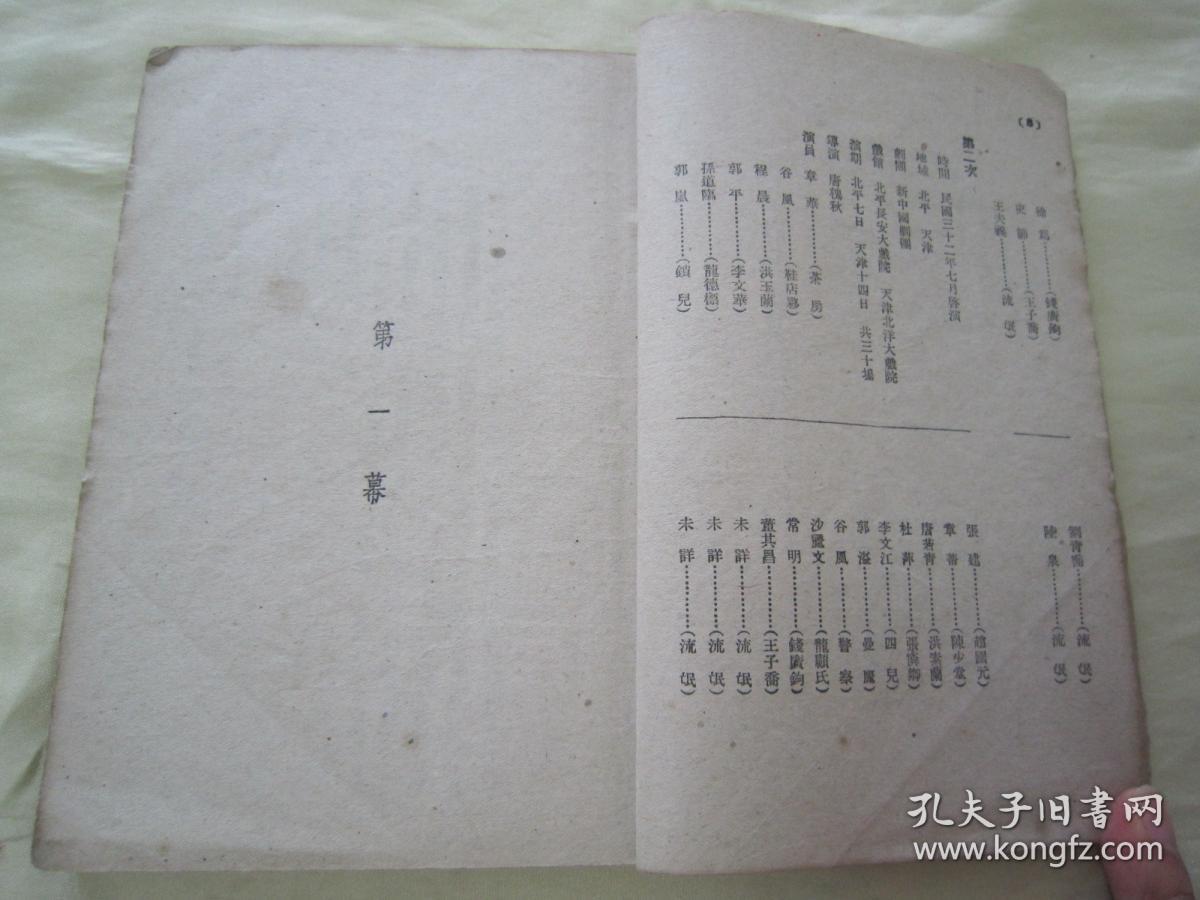 (8)
徐爲…………(錢廣鉤)
史節…………(王子喬)
王夫義…………(流氓)
劉青喬…………(流氓)
陸泉…………(流氓)
第二次
時間 民國三十二年七月啓演
地域 北平 天津
劇團 新中國劇團
戲館 北平長安大戲院 天津北洋大戲院
演期 北平七日 天津十四日 共三十場
導演 唐槐秋
演員 章華…………(茶房)
谷風…………(鞋店夥)
程晨…………(洪玉蘭)
郭平…………(李文華)
孫道臨…………(龍德標)
郭嵐…………(鎖兒)
張建…………(趙國元)
章蒂…………(陳少棠)
唐若青…………(洪素蘭)
杜萍…………(張寅卿)
李文江…………(四兒)
郭溢…………(曼厦)
谷風…………(警察)
沙麗文…………(龍顧氏)
常明…………(錢廣鉤)
董其昌…………(王子喬)
未詳…………(流氓)
未詳…………(流氓)
未詳…………(流氓)
第一幕
孔夫子旧书网
www.kongfz.com